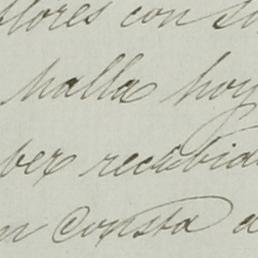 flores con su
halla hoy
ber recibida
n consta a